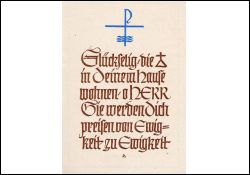 Glückselig, die
in deinem Hause
wohnen, o HERR
Sie werden dich
preisen von Ewig=
keit zu Ewigkeit